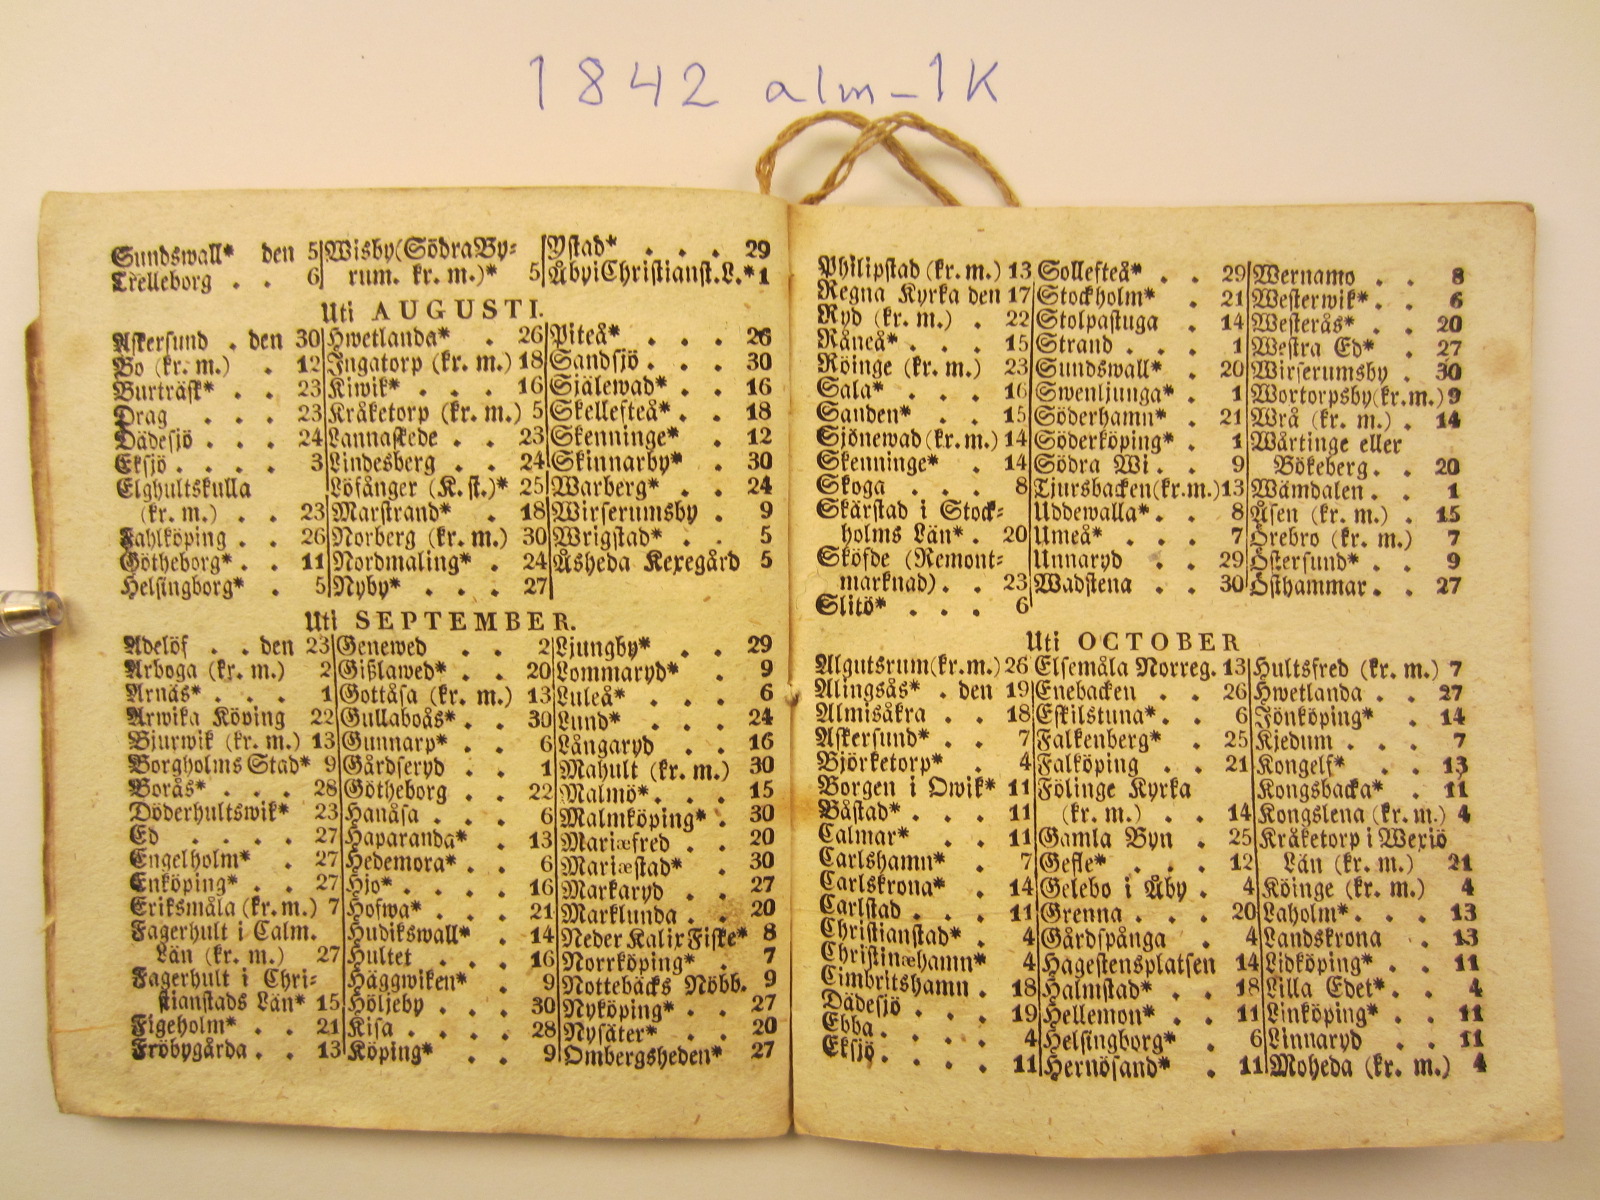 1842 alm-1K
Sundswall* den 5
Trelleborg . . 6
Wisby(Södra By-
rum. kr. m.)* 5
Ystad* . . . . 29
Åby i Christianst. L.* 1
Uti AUGUSTI.
Askersund . den 30
Bo (kr. m.) . 12
Burträsk* . . 23
Drag . . . 23
Dädesjö . . . 24
Eksjö . . . . 3
Elghultskulla
(kr. m.) . . 23
Fahlköping . . 26
Götheborg* . . 11
Helsingborg* . 5
Hwetlanda* . 26
Ingatorp (kr. m.) 18
Kiwik* . . . 16
Kråketorp (kr. m.) 5
Lannaskede . . 23
Lindesberg . . 24
Löfånger (K. st.)* 25
Marstrand* . 18
Norberg (kr. m.) 30
Nordmaling* . 24
Nyby* . . . 27
Piteå* . . . . 26
Sandsjö . . . 30
Själewad* . . 16
Skellefteå* . . 18
Skenninge* . 12
Skinnarby* . 30
Warberg* . . 24
Wirserumsby . 9
Wrigstad* . . 5
Åsheda Kexegård 5
Uti SEPTEMBER.
Adelöf . . den 23
Arboga (kr. m.) 2
Arnäs* . . . 1
Arwika Köping 22
Bjurwik (kr. m.) 13
Borgholms Stad* 9
Borås* . . . 28
Döderhultswik* 23
Ed . . . . 27
Engelholm* . 27
Enköping* . . 27
Eriksmåla (kr. m.) 7
Fagerhult i Calm.
Län (kr. m.) 27
Fagerhult i Chri-
stianstads Län* 15
Figeholm* . . 21
Fröbygårda . . 13
Genewed . . 2
Gißlawed* . . 20
Gottåsa (kr. m.) 13
Gullaboås* . . 30
Gunnarp* . . 6
Gårdseryd . . 1
Götheborg . . 22
Hanåsa . . . 6
Haparanda* . 13
Hedemora* . . 6
Hjo* . . . . 16
Hofwa* . . . 21
Hudikswall* . 14
Hultet . . . 16
Häggwiken* . 9
Höljeby . . . 30
Kisa . . . . 28
Köping* . . 9
Ljungby* . . 29
Lommaryd* . 9
Luleå* . . . 6
Lund* . . . 24
Långaryd . . 16
Mahult (kr. m.) 30
Malmö* . . . 15
Malmköping* . 30
Mariæfred . . 20
Mariæstad* . 30
Markaryd . . 27
Marklunda . . 20
Neder Kalix Fiske* 8
Norrköping* . 7
Nottebäcks Nöbb. 9
Nyköping* . . 27
Nysäter* . . 20
Ombergsheden* 27
Philipstad (kr. m.) 13
Regna Kyrka den 17
Ryd (kr. m.) . 22
Råneå* . . . 15
Röinge (kr. m.) 23
Sala* . . . 16
Sanden* . . 15
Sjönewad (kr. m.) 14
Skenninge* . 14
Skoga . . . 8
Skärstad i Stock-
holms Län* . 20
Sköfde (Remont-
marknad) . . 23
Slitö* . . . 6
Sollefteå* . . 29
Stockholm* . 21
Stolpastuga . 14
Strand . . . 1
Sundswall* . 20
Swenljunga* . 1
Söderhamn* . 21
Söderköping* . 1
Södra Wi . . 9
Tjursbacken (kr. m.) 13
Uddewalla* . . 8
Umeå* . . . 7
Unnaryd . . 29
Wadstena . . 30
Wernamo . . 8
Westerwik* . . 6
Westerås* . . 20
Westra Ed* . 27
Wirserumsby . 30
Wortorpsby (kr. m.) 9
Wrå (kr. m.) . 14
Wårtinge eller
Bökeberg . . 20
Wämdalen . . 1
Åsen (kr. m.) . 15
Örebro (kr. m.) 7
Östersund* . . 9
Östhammar . . 27
Uti OCTOBER
Algutsrum (kr. m.) 26
Alingsås* . den 19
Almisåkra . . 18
Askersund* . . 7
Björketorp* . 4
Borgen i Owik* 11
Båstad* . . . 11
Calmar* . . 11
Carlshamn* . 7
Carlskrona* . 14
Carlstad . . . 11
Christianstad* . 4
Christinæhamn* 4
Cimbritshamn . 18
Dädesjö . . . 19
Ebba . . . . 4
Eksjö . . . . 11
Elsemåla Norreg. 13
Enebacken . . 26
Eskilstuna* . . 6
Falkenberg* . 25
Falköping . . 21
Fölinge Kyrka
(kr. m.) . . 14
Gamla Byn . 25
Gefle* . . . 12
Gelebo i Åby . 4
Grenna . . . 20
Gårdspånga . 4
Hagestensplatsen 14
Halmstad* . . 18
Hellemon* . . 11
Helsingborg* . 6
Hernösand* . 11
Hultsfred (kr. m.) 7
Hwetlanda . . 27
Jönköping* . 14
Kjedum . . . 7
Kongelf* . . 13
Kongsbacka* . 11
Kongslena (kr. m.) 4
Kråketorp i Wexiö
Län (kr. m.) 21
Köinge (kr. m.) 4
Laholm* . . . 13
Landskrona . 13
Lidköping* . . 11
Lilla Edet* . . 4
Linköping* . . 11
Linnaryd . . 11
Moheda (kr. m.) 4